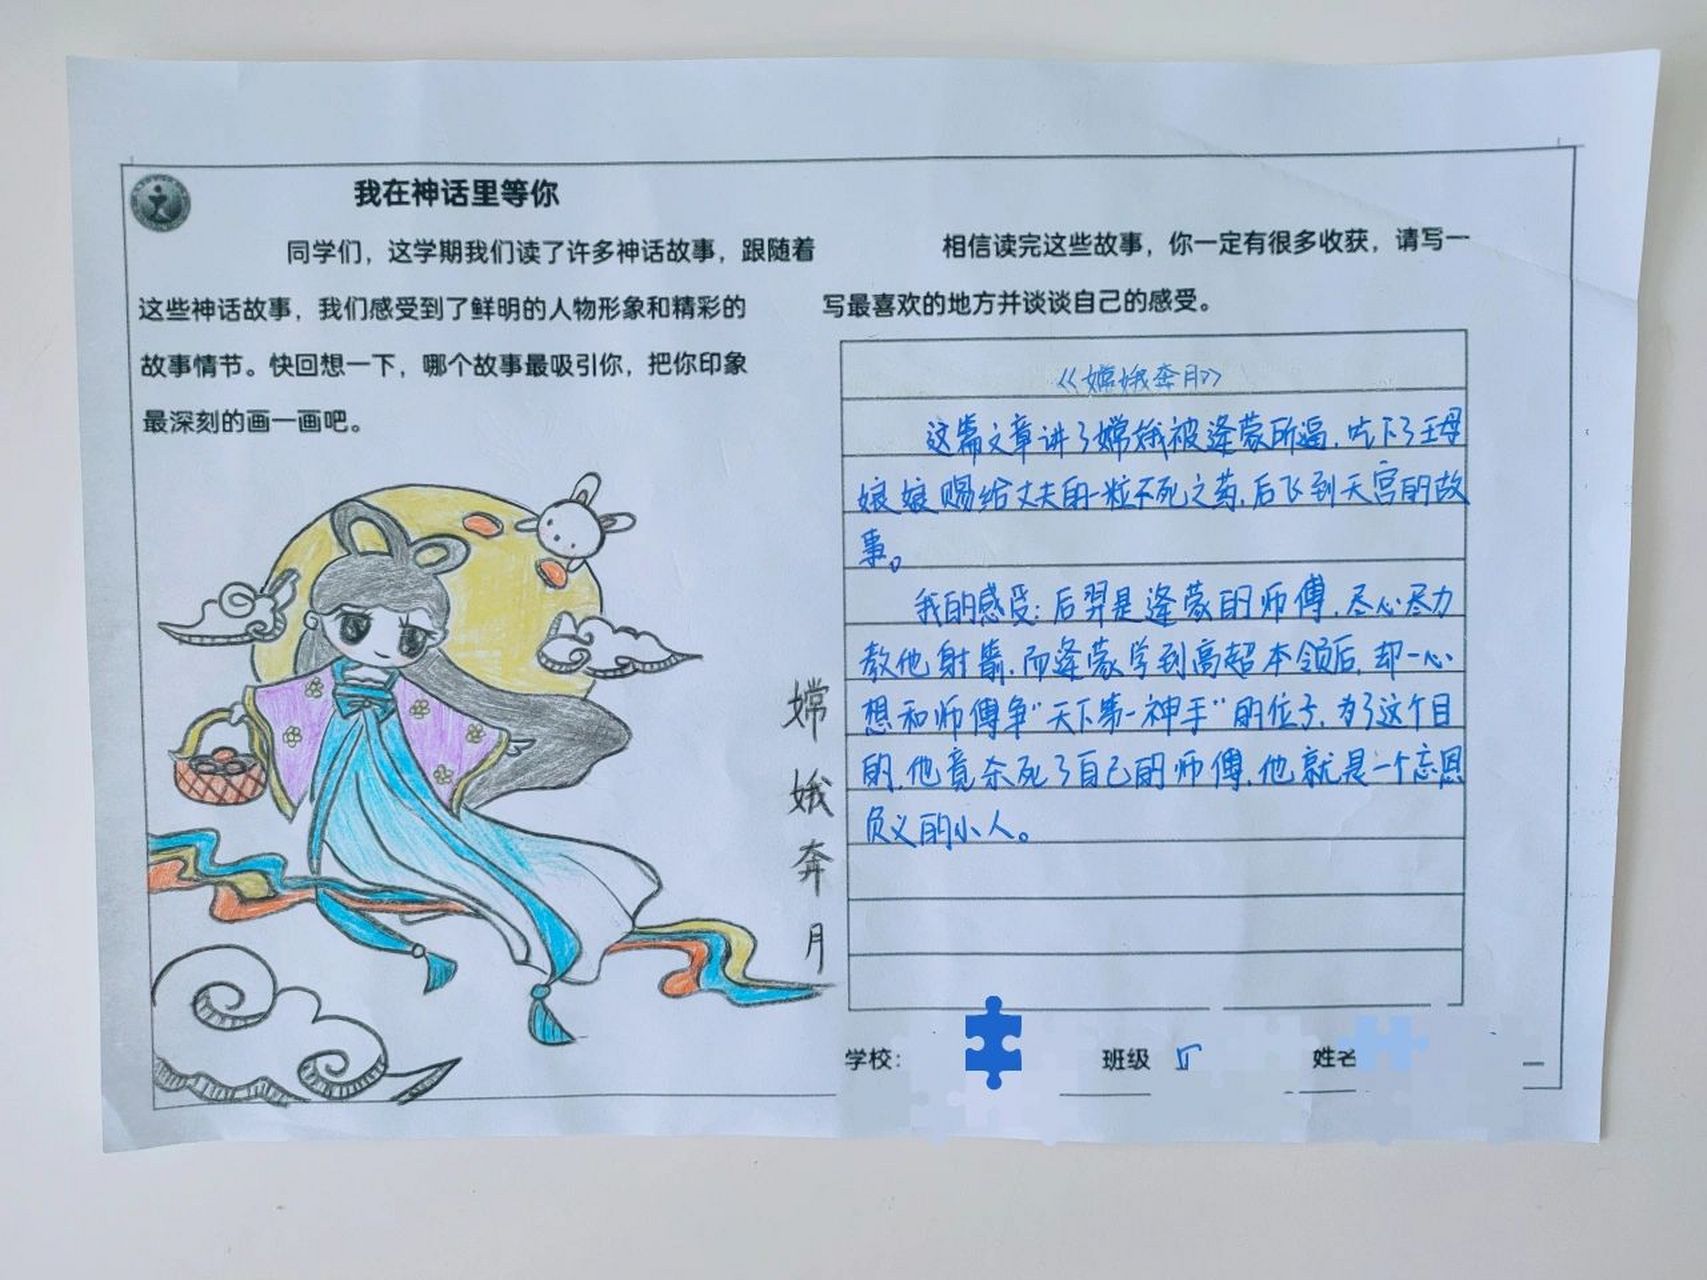 我在神话里等你
同学们，这学期我们读了许多神话故事，跟随着
这些神话故事，我们感受到了鲜明的人物形象和精彩的
故事情节。快回想一下，哪个故事最吸引你，把你印象
最深刻的画一画吧。
嫦娥奔月
相信读完这些故事，你一定有很多收获，请写一
写最喜欢的地方并谈谈自己的感受。
《嫦娥奔月》
这篇文章讲了嫦娥被逢蒙所逼，吃下了王母
娘娘赐给丈夫的一粒不死之药，后飞到天宫的故
事。
我的感受：后羿是逢蒙的师傅，尽心尽力
教他射箭，而逢蒙学到高超本领后，却一心
想和师傅争“天下第一神手”的位子，为了这个目
的，他竟杀死了自己的师傅，他就是一个忘恩
负义的小人。
学校：
班级
姓名